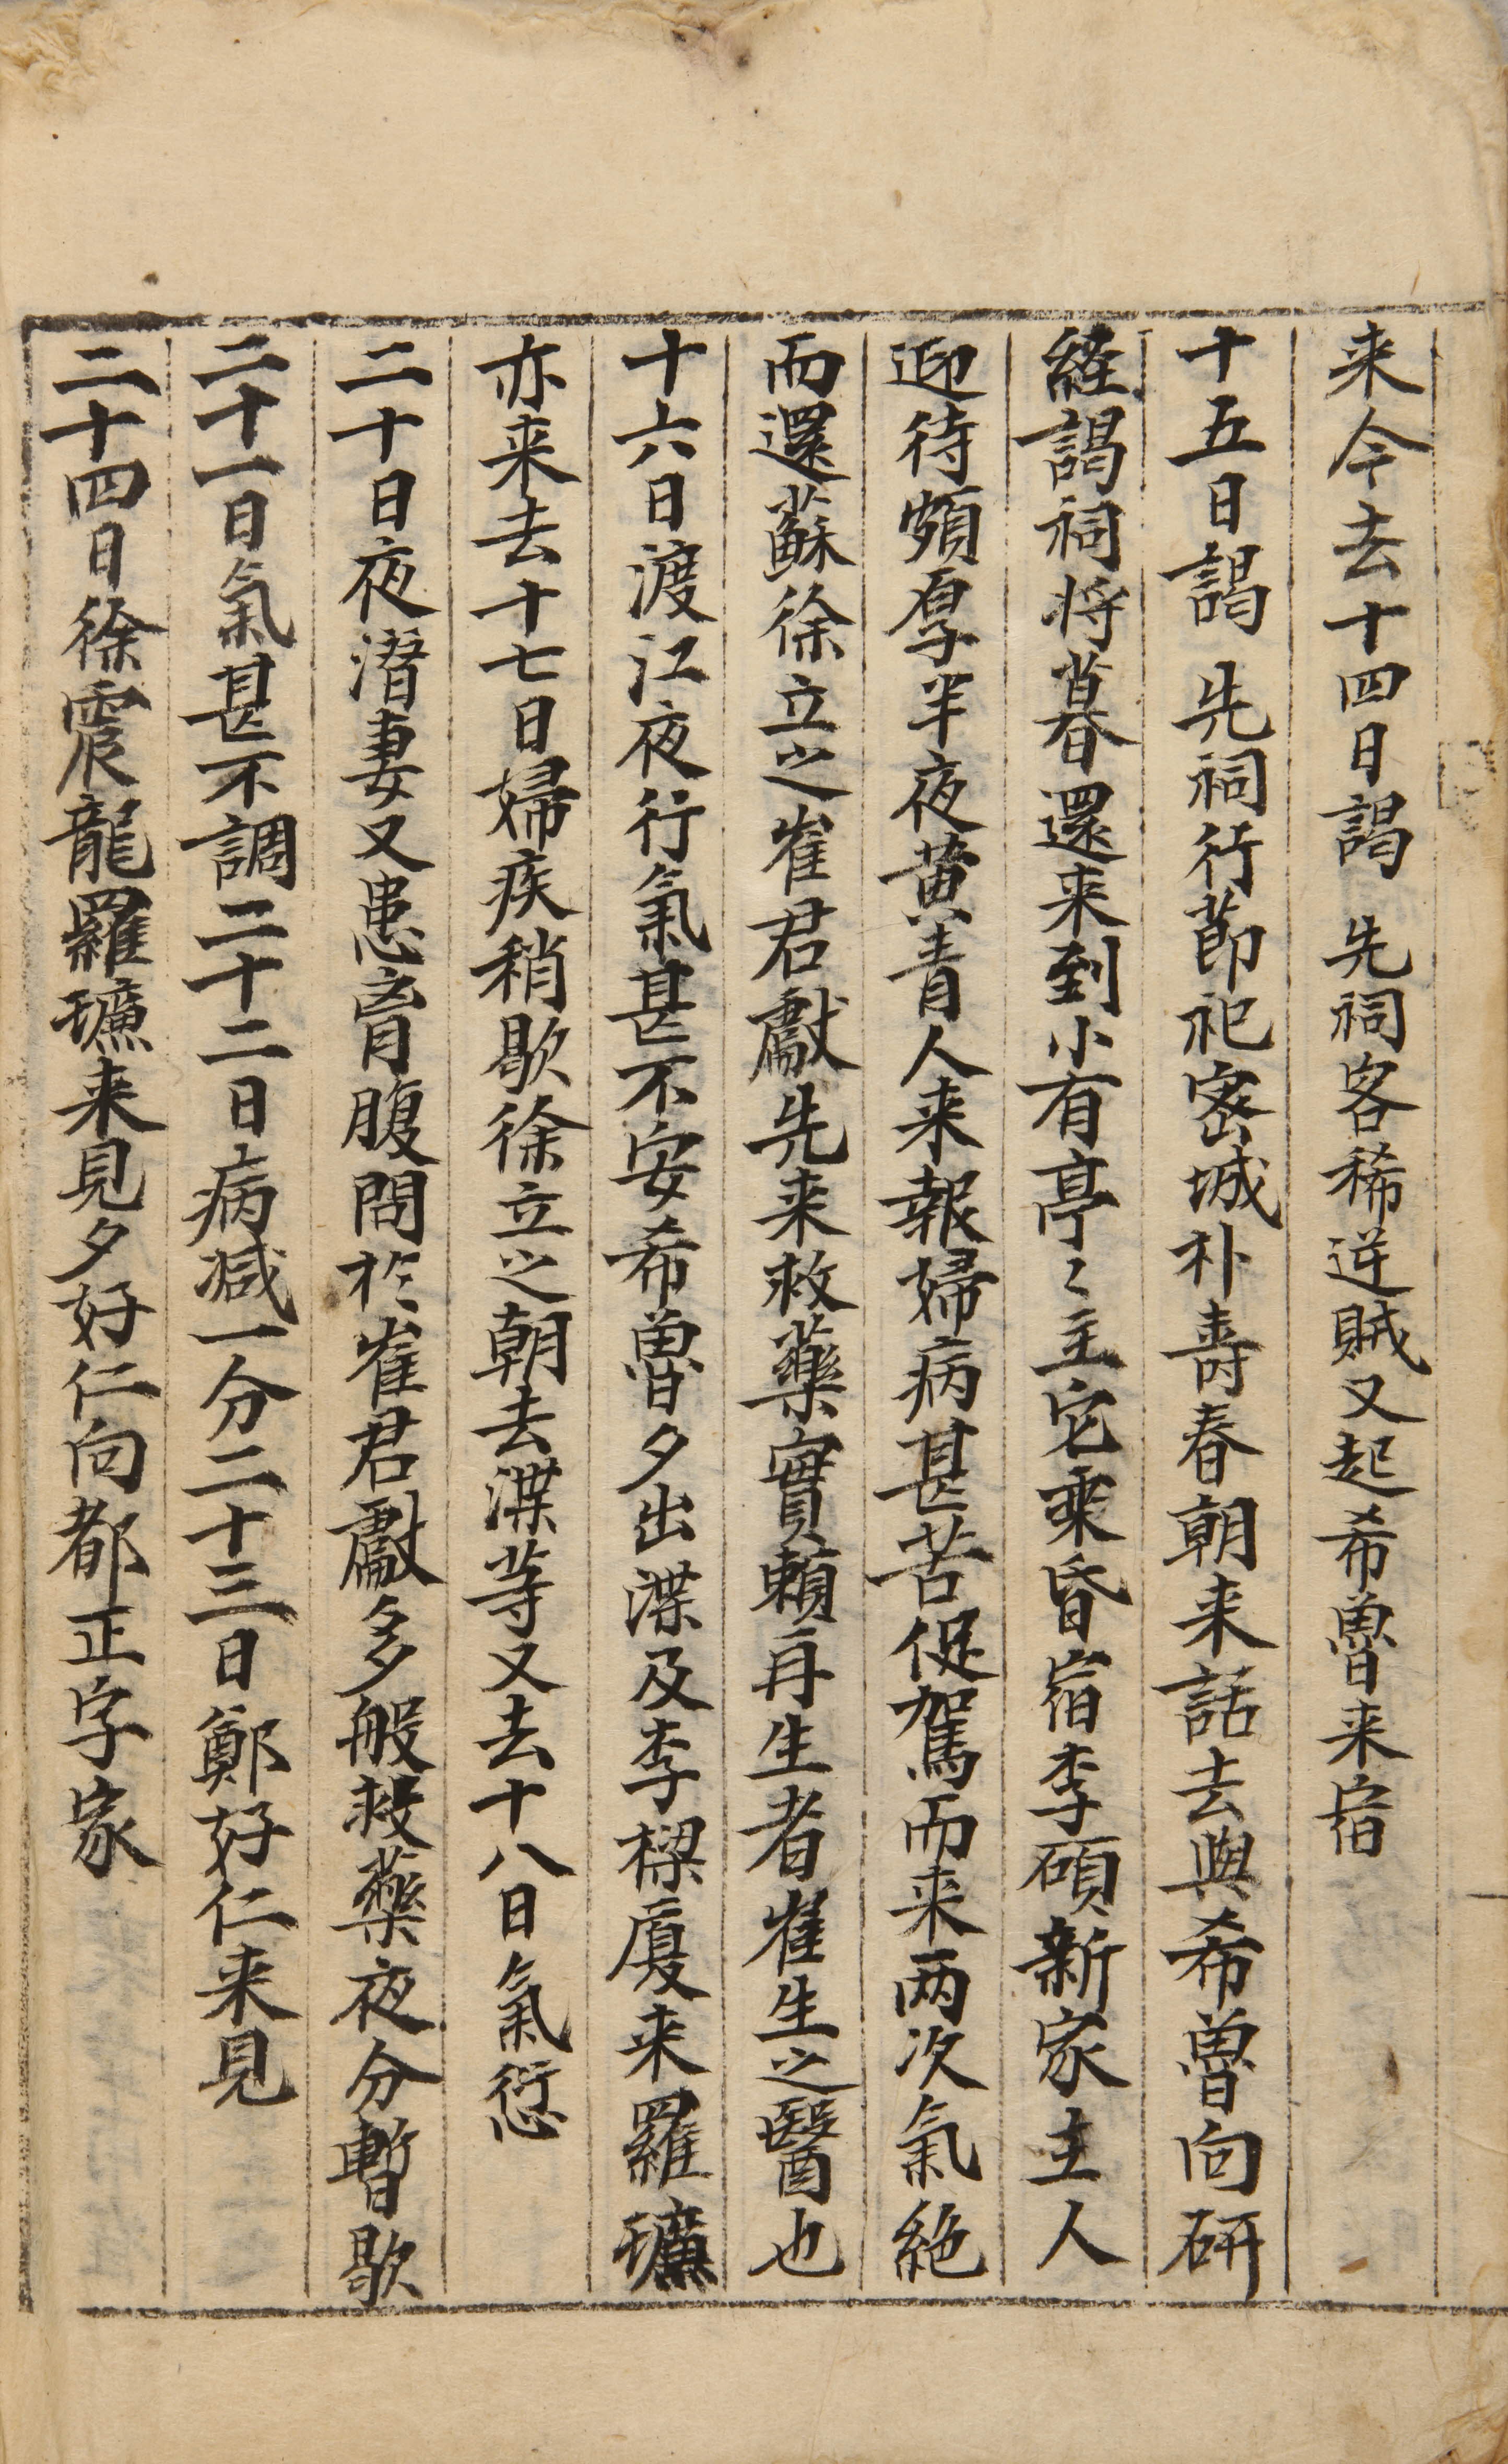 来今去十四日謁　先祠客稀逆賊又起希魯来宿
十五日謁　先祠行莭祀密城朴壽春朝来話去與希魯向研
経謁祠将暮還来到小有亭〻主宅乘昏宿李碩新家主人
迎待頗厚半夜黄青人来報婦病甚苦促駕而来两次氣絶
而還蘇徐立之崔君獻先来救藥實賴再生者崔生之醫也
十六日渡江夜行氣甚不安希魯夕出渫及李樑廈来羅㼅
亦来去十七日婦疾稍歇徐立之朝去渫等又去十八日氣愆
二十日夜潜妻又患膏腹問扵崔君獻多般救藥夜分暫歇
二十一日氣甚不調二十二日病减一分二十三日鄭好仁来見
二十四日徐震龍羅㼅来見夕好仁向都正字家